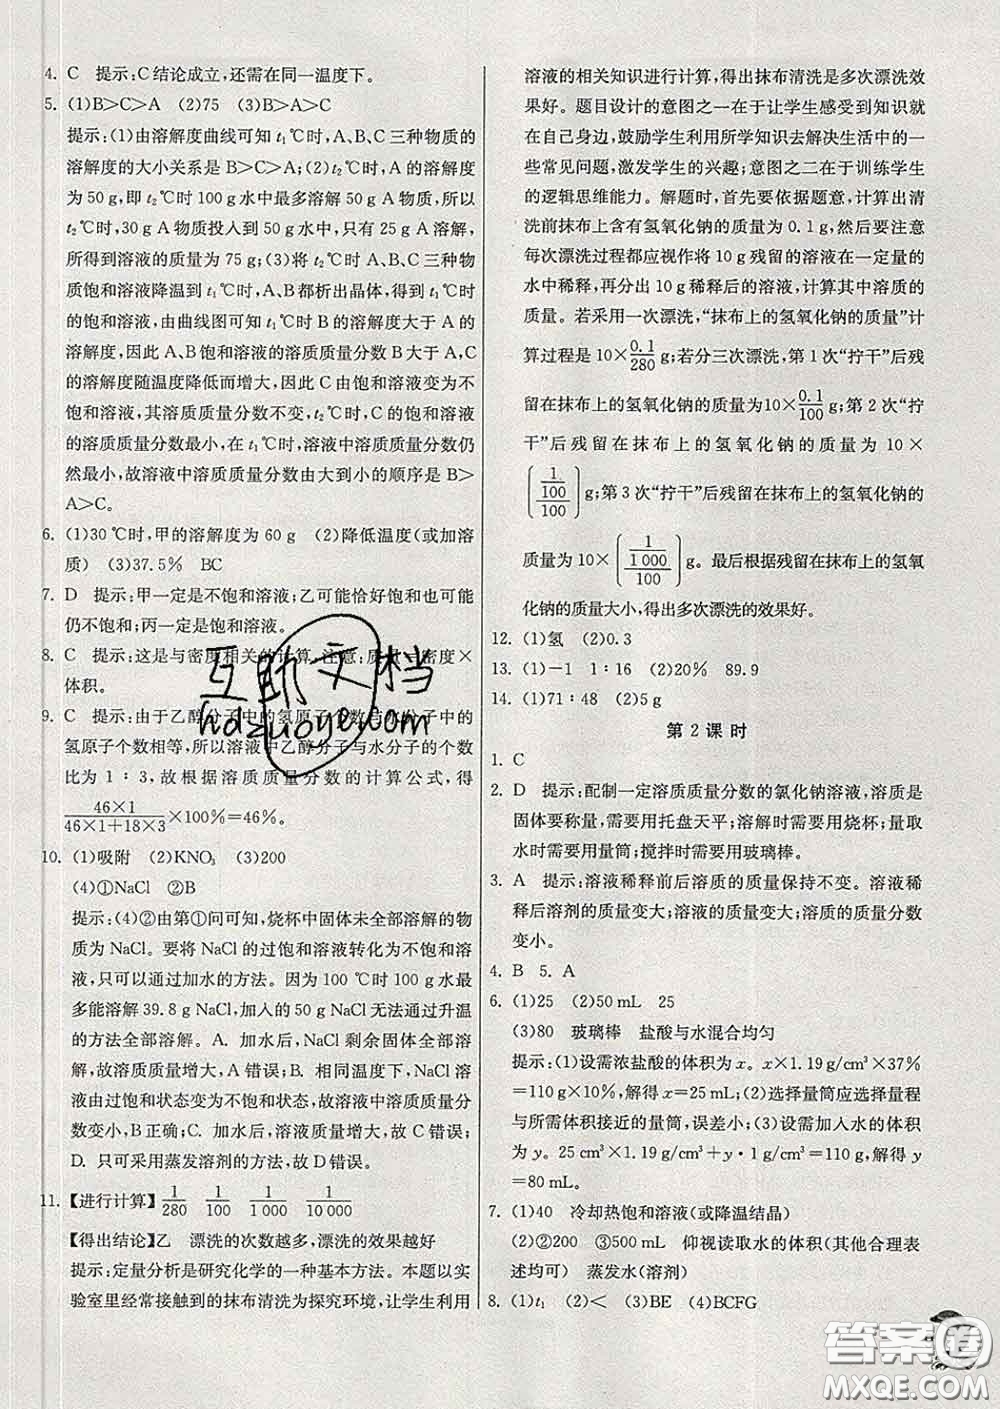 4. C 提示:C结论成立,还需在同一温度下。
5. (1)B>C>A (2)75 (3)B>A>C
提示:(1)由溶解度曲线可知 t₁℃时,A、B、C三种物质的
溶解度的大小关系是 B>C>A;(2)t₂℃时,A的溶解度
为50 g,即 t₂℃时100 g水中最多溶解50 g A物质,所以
t₂℃时,30 g A物质投入到50 g水中,只有25 g A溶解,
所得到溶液的质量为75 g;(3)将 t₂℃时A、B、C三种物
质饱和溶液降温到 t₁℃时,A、B都析出晶体,得到 t₁℃时
的饱和溶液,由曲线图可知 t₁℃时B的溶解度大于A的
溶解度,因此A、B饱和溶液的溶质质量分数B大于A,C
的溶解度随温度降低而增大,因此C由饱和溶液变为不
饱和溶液,其溶质质量分数不变,t₂℃时,C的饱和溶液
的溶质质量分数最小,在 t₁℃时,溶液中溶质质量分数仍
然最小,故溶液中溶质质量分数由大到小的顺序是 B>
A>C。
6. (1)30℃时,甲的溶解度为60 g (2)降低温度(或加溶
质) (3)37.5% BC
7. D 提示:甲一定是不饱和溶液;乙可能恰好饱和也可能
仍不饱和;丙一定是饱和溶液。
8. C 提示:这是与密度相关的计算,注意:质量=密度×
体积。
9. C 提示:由于乙醇分子中的氢原子个数与水分子中的
氢原子个数相等,所以溶液中乙醇分子与水分子的个数
比为1∶3,故根据溶质质量分数的计算公式,得
46×1/(46×1+18×3)×100%=46%。
10. (1)吸附 (2)KNO₃ (3)200
(4)①NaCl ②B
提示:(4)②由第①问可知,烧杯中固体未全部溶解的物
质为NaCl。要将NaCl的过饱和溶液转化为不饱和溶
液,只可以通过加水的方法。因为100℃时100 g水最
多能溶解39.8 g NaCl,加入的50 g NaCl无法通过升温
的方法全部溶解。A. 加水后,NaCl剩余固体全部溶
解,故溶质质量增大,A错误;B. 相同温度下,NaCl溶液
由过饱和状态变为不饱和状态,故溶液中溶质质量分
数变小,B正确;C. 加水后,溶液质量增大,故C错误;
D. 只可采用蒸发溶剂的方法,故D错误。
11. 【进行计算】1/280 1/100 1/1 000 1/10 000
【得出结论】乙 漂洗的次数越多,漂洗的效果越好
提示:定量分析是研究化学的一种基本方法。本题以实
验室里经常接触到的抹布清洗为探究环境,让学生利用
溶液的相关知识进行计算,得出抹布清洗是多次漂洗效
果好。题目设计的意图之一在于让学生感受到知识就
在自己身边,鼓励学生利用所学知识去解决生活中的一
些常见问题,激发学生的兴趣;意图之二在于训练学生
的逻辑思维能力。解题时,首先要依据题意,计算出清
洗前抹布上含有氢氧化钠的质量为0.1 g,然后要注意
每次漂洗过程都应视作将10 g残留的溶液在一定量的
水中稀释,再分出10 g稀释后的溶液,计算其中溶质的
质量。若采用一次漂洗,“抹布上的氢氧化钠的质量”计
算过程是10×0.1/280 g;若分三次漂洗,第1次“拧干”后残
留在抹布上的氢氧化钠的质量为10×0.1/100 g;第2次“拧
干”后残留在抹布上的氢氧化钠的质量为10×
((1/100)/100)g;第3次“拧干”后残留在抹布上的氢氧化钠的
质量为10×((1/1 000)/100)g。最后根据残留在抹布上的氢氧
化钠的质量大小,得出多次漂洗的效果好。
12. (1)氢 (2)0.3
13. (1)-1 1∶16 (2)20% 89.9
14. (1)71∶48 (2)5 g
第2课时
1. C
2. D 提示:配制一定溶质质量分数的氯化钠溶液,溶质是
固体要称量,需要用托盘天平;溶解时要用烧杯;量取
水时需要用量筒;搅拌时需要用玻璃棒。
3. A 提示:溶液稀释前后溶质的质量保持不变。溶液稀
释后溶剂的质量变大;溶液的质量变大;溶质的质量分数
变小。
4. B 5. A
6. (1)25 (2)50 mL 25
(3)80 玻璃棒 盐酸与水混合均匀
提示:(1)设需浓盐酸的体积为x。x×1.19 g/cm³×37%
=110 g×10%,解得x=25 mL;(2)选择量筒应选择量程
与所需体积接近的量筒,误差小;(3)设需加入水的体积
为y。25 cm³×1.19 g/cm³+y·1 g/cm³=110 g,解得y
=80 mL。
7. (1)40 冷却热饱和溶液(或降温结晶)
(2)②200 ③500 mL 仰视读取水的体积(其他合理表
述均可) 蒸发水(溶剂)
8. (1)t₁ (2)< (3)BE (4)BCFG
互助文档
hdzuoye.com
答案圈
MXQE.COM